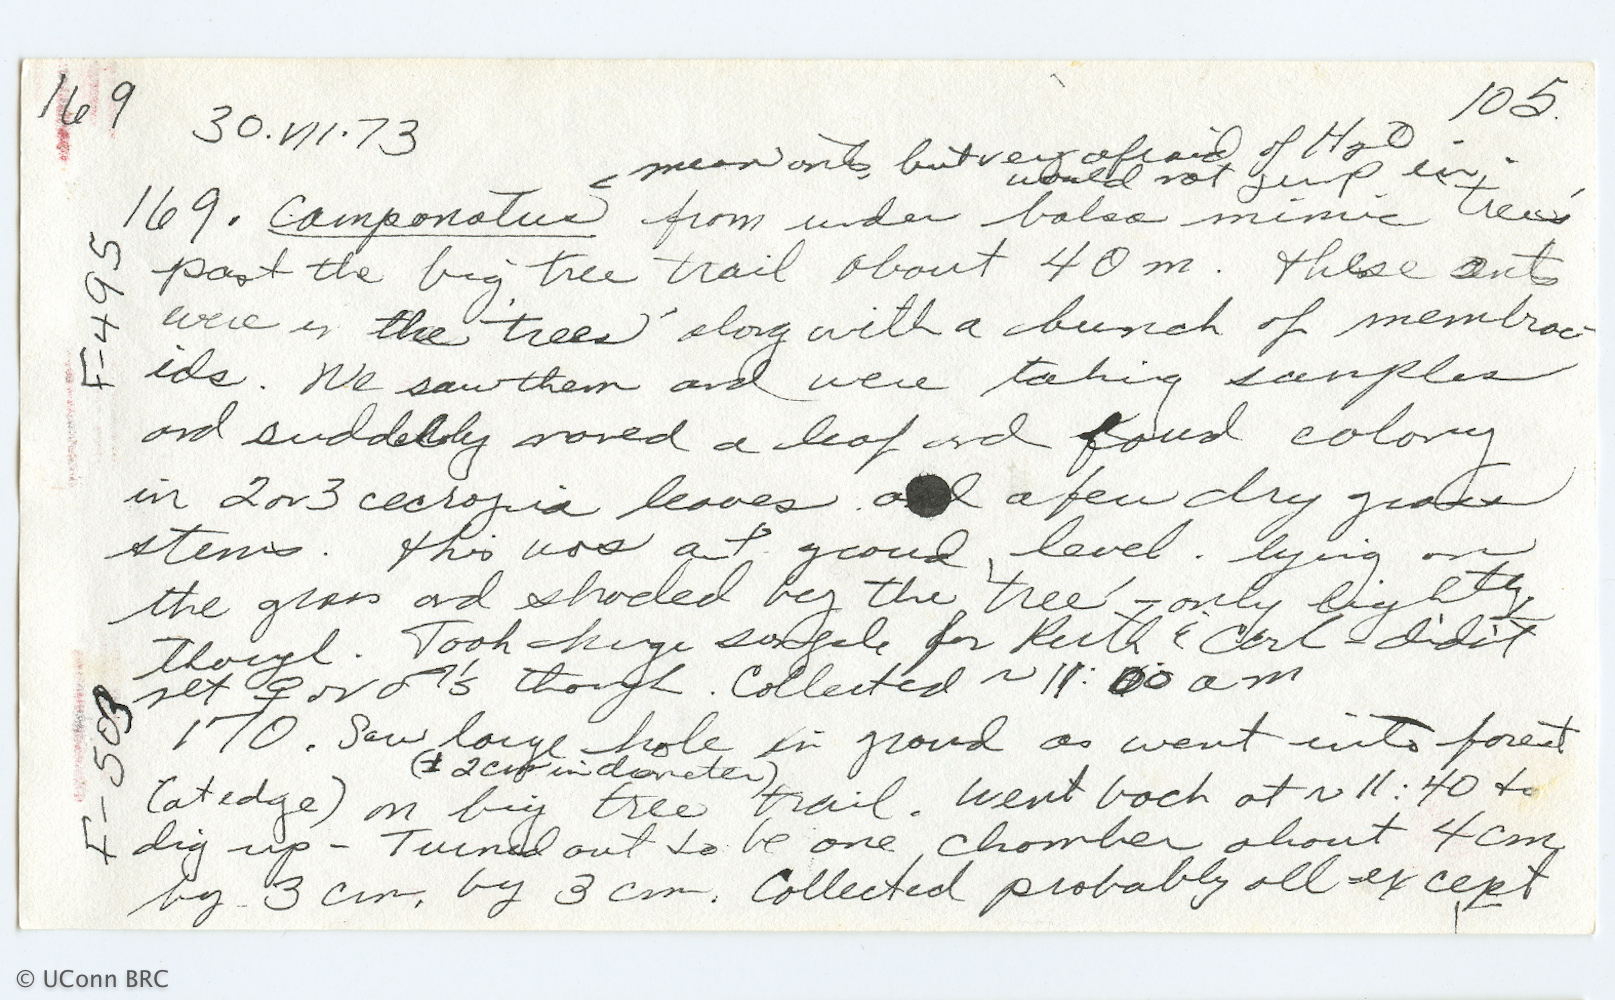 169
105.
30.VII.73
mean ants, but very afraid of H2O
would not jump in.
169. Camponotus from under balsa mimic 'trees'
past the big tree trail about 40 m. These ants
were in the 'trees' along with a bunch of membrac-
ids. We saw them and were taking samples
and suddenly moved a leaf and found colony
in 2 or 3 cecropia leaves and a few dry grass
stems. This was at ground level. lying on
the grass and shaded by the 'tree' - only lightly,
though. Took huge sample for Ruth & Carl - didn't
get ♀ or ♂'s though. Collected ~ 11:00 am
170. Saw large hole in ground as went into forest
(± 2 cm in diameter)
(at edge) on big tree trail. Went back at ~ 11:40 to
dig up - Turned out to be one chamber about 4 cm
by 3 cm, by 3 cm. Collected probably all except
F-495
F-503
© UConn BRC